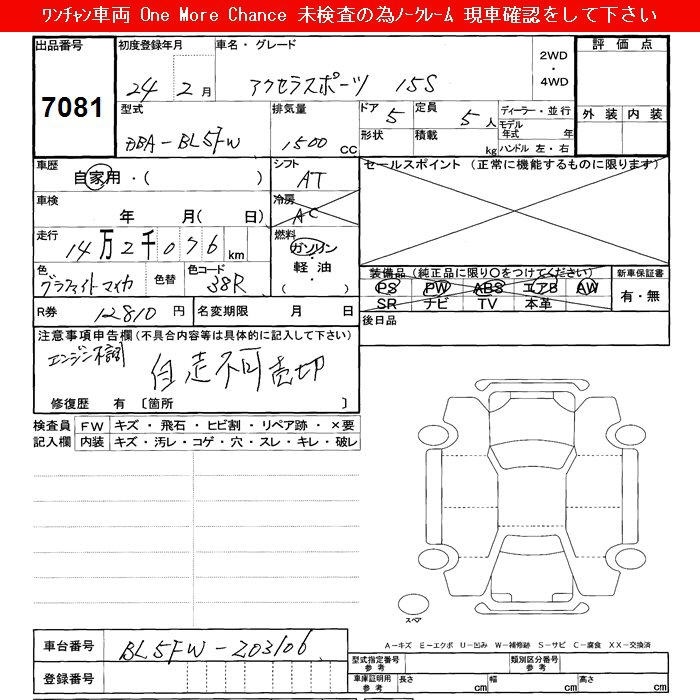 ﾜﾝﾁｬﾝ車両 One More Chance 未検査の為ﾉｰｸﾚｰﾑ 現車確認をして下さい
出品番号 初度登録年月 車名・グレード 2WD・4WD 評価点
7081 24 2月 アクセラスポーツ 15S
型式 排気量 ドア 5 定員 5人 ディーラー・並行 外装 内装
DBA-BL5FW 1500 CC 形状 積載 kg モデル年式 年
ハンドル 左・右
車歴 自家用・( ) シフト AT セールスポイント (正常に機能するものに限ります)
車検 年 月( 日) 冷房 AC
走行 14万2千076km 燃料 ガソリン・軽油・( )
色 グラファイトマイカ 色替 色コード 38R 装備品(純正品に限り○をつけてください) 新車保証書
PS PW ABS エアB AW 有・無
SR ナビ TV 本革
R券 12810円 名変期限 月 日 後日品
注意事項申告欄(不具合内容等は具体的に記入して下さい)
エンジン不調 自走不可 売切
修復歴 有 〔箇所 〕
検査員 FW キズ・飛石・ヒビ割・リペア跡・×要
記入欄 内装 キズ・汚レ・コゲ・穴・スレ・キレ・破レ
スペア
A-キズ E-エクボ U-凹み W-補修跡 S-サビ C-腐食 XX-交換済
車台番号 BL5FW-203106 型式指定番号 参考 類別区分番号 参考
登録番号 車庫証明用 参考 長さ cm 幅 cm 高さ cm